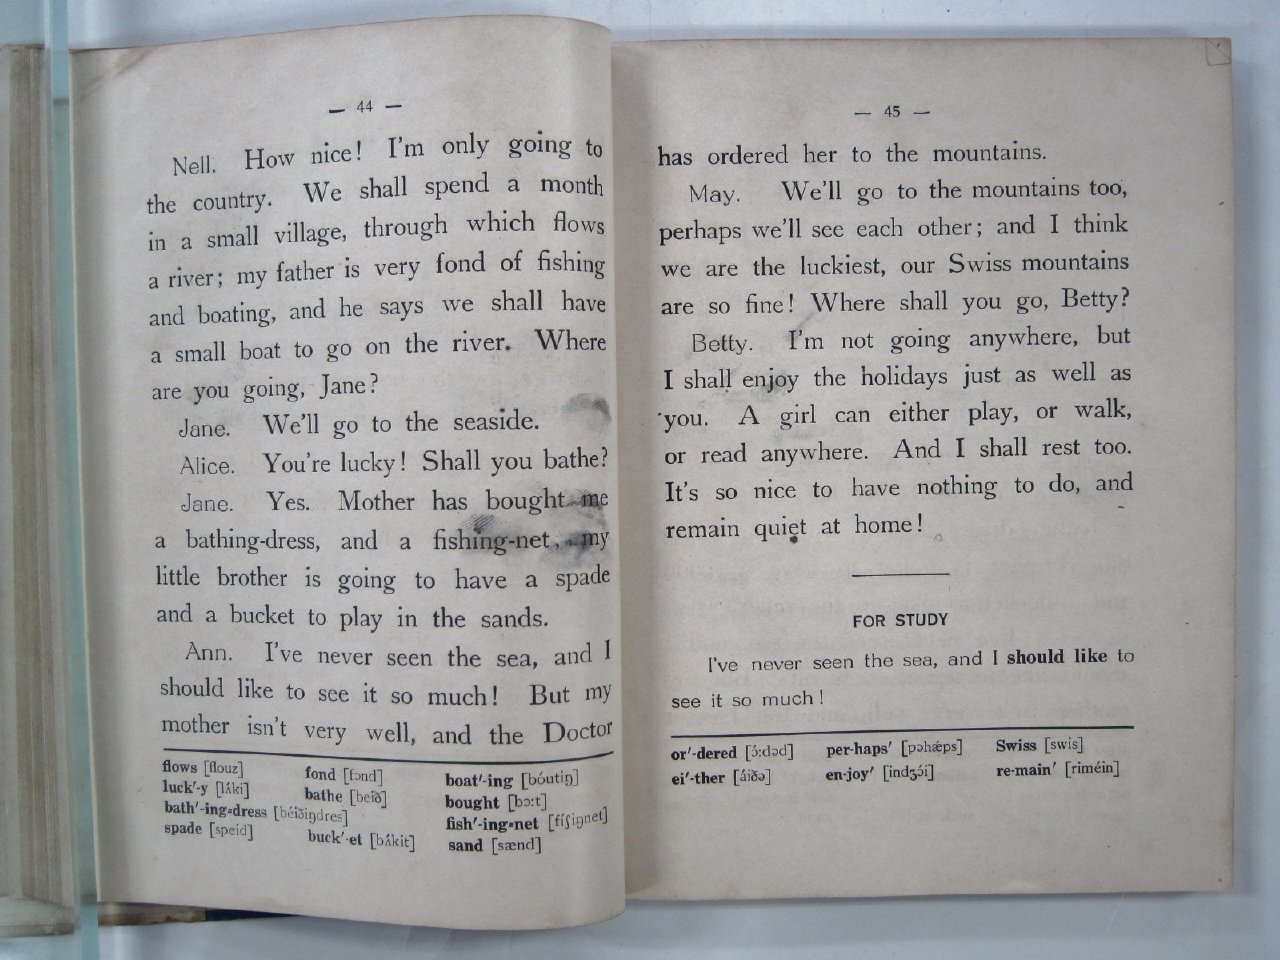 — 44 —
Nell. How nice! I'm only going to
the country. We shall spend a month
in a small village, through which flows
a river; my father is very fond of fishing
and boating, and he says we shall have
a small boat to go on the river. Where
are you going, Jane?
Jane. We'll go to the seaside.
Alice. You're lucky! Shall you bathe?
Jane. Yes. Mother has bought me
a bathing-dress, and a fishing-net, my
little brother is going to have a spade
and a bucket to play in the sands.
Ann. I've never seen the sea, and I
should like to see it so much! But my
mother isn't very well, and the Doctor
flows [flouz] fond [fɔnd] boat'-ing [bóutiŋ]
luck'-y [lʌ́ki] bathe [beið] bought [bɔ:t]
bath'-ing-dress [béiðiŋdres] fish'-ing-net [fíʃiŋnet]
spade [speid] buck'-et [bʌ́kit] sand [sænd]
— 45 —
has ordered her to the mountains.
May. We'll go to the mountains too,
perhaps we'll see each other; and I think
we are the luckiest, our Swiss mountains
are so fine! Where shall you go, Betty?
Betty. I'm not going anywhere, but
I shall enjoy the holidays just as well as
you. A girl can either play, or walk,
or read anywhere. And I shall rest too.
It's so nice to have nothing to do, and
remain quiet at home!
FOR STUDY
I've never seen the sea, and I should like to
see it so much!
or'-dered [ɔ́:dəd] per-haps' [pəhǽps] Swiss [swis]
ei'-ther [áiðə] en-joy' [indʒɔ́i] re-main' [riméin]